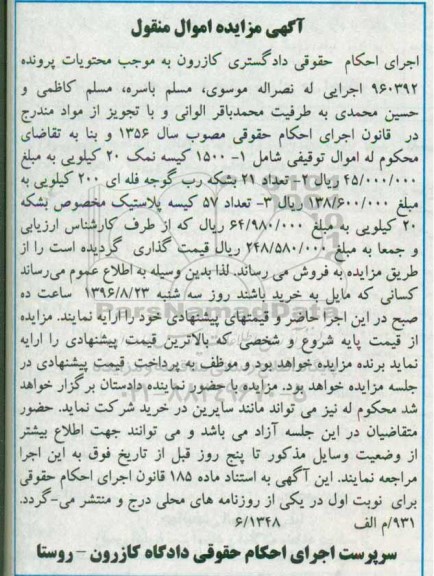 آگهی مزایده اموال منقول
اجرای احکام حقوقی دادگستری کازرون به موجب محتویات پرونده
۹۶۰۳۹۲ اجرایی له نصراله موسوی، مسلم باسره، مسلم کاظمی و
حسین محمدی به طرفیت محمدباقر الوانی و با تجویز از مواد مندرج
در قانون اجرای احکام حقوقی مصوب سال ۱۳۵۶ و بنا به تقاضای
محکوم له اموال توقیفی شامل ۱- ۱۵۰۰ کیسه نمک ۲۰ کیلویی به مبلغ
۴۵/۰۰۰/۰۰۰ ریال ۲- تعداد ۲۱ بشکه رب گوجه فله ای ۲۰۰ کیلویی به
مبلغ ۱۳۸/۶۰۰/۰۰۰ ریال ۳- تعداد ۵۷ کیسه پلاستیک مخصوص بشکه
۲۰ کیلویی به مبلغ ۶۴/۹۸۰/۰۰۰ ریال که از طرف کارشناس ارزیابی
و جمعا به مبلغ ۲۴۸/۵۸۰/۰۰۰ ریال قیمت گذاری گردیده است را از
طریق مزایده به فروش می رساند. لذا بدین وسیله به اطلاع عموم می‌رساند
کسانی که مایل به خرید باشند روز سه شنبه ۱۳۹۶/۸/۲۳ ساعت ده
صبح در این اجرا حاضر و قیمتهای پیشنهادی خود را ارایه نمایند. مزایده
از قیمت پایه شروع و شخصی که بالاترین قیمت پیشنهادی را ارایه
نماید برنده مزایده خواهد بود و موظف به پرداخت قیمت پیشنهادی در
جلسه مزایده خواهد بود. مزایده با حضور نماینده دادستان برگزار خواهد
شد محکوم له نیز می تواند مانند سایرین در خرید شرکت نماید. حضور
متقاضیان در این جلسه آزاد می باشد و می توانند جهت اطلاع بیشتر
از وضعیت وسایل مذکور تا پنج روز قبل از تاریخ فوق به این اجرا
مراجعه نمایند. این آگهی به استناد ماده ۱۸۵ قانون اجرای احکام حقوقی
برای نوبت اول در یکی از روزنامه های محلی درج و منتشر می-گردد.
۹۳۱/م الف ۶/۱۳۴۸
سرپرست اجرای احکام حقوقی دادگاه کازرون - روستا
ParsNamadData